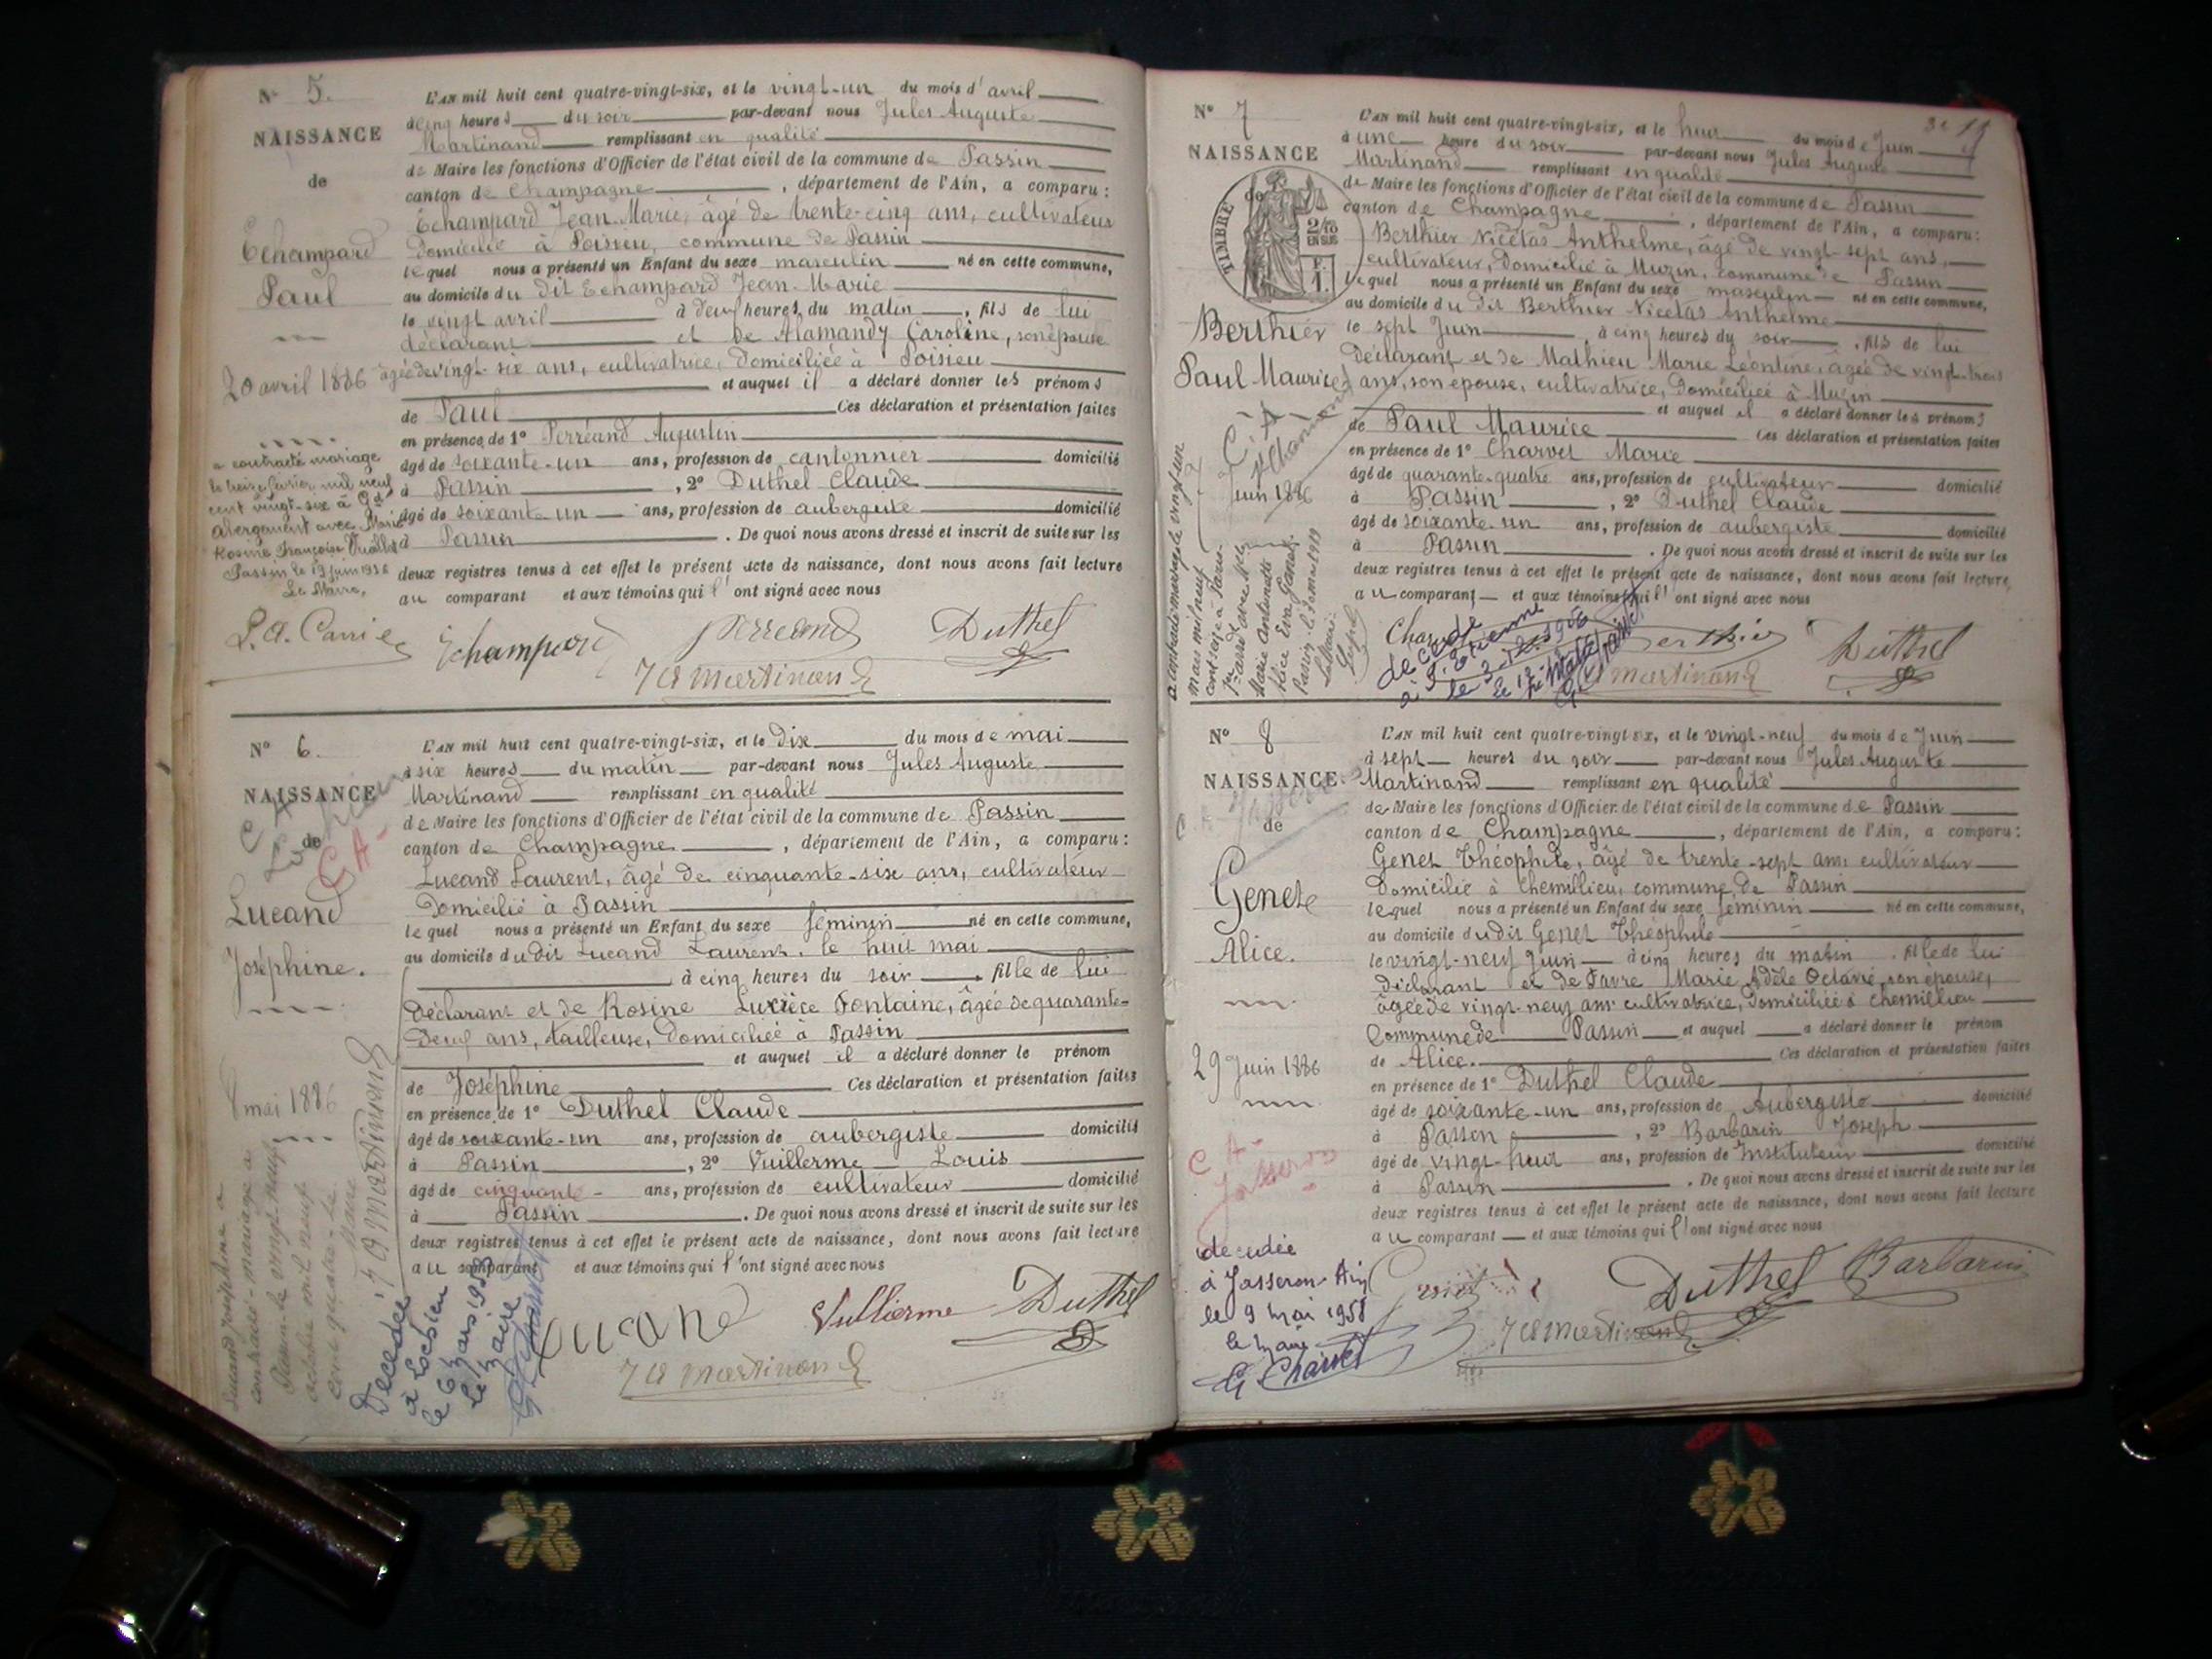 N° 5.
NAISSANCE
de
Echampard
Paul
20 avril 1886
a contracté mariage
le treize février mil neuf
cent vingt-six à Gd
Abergement avec Marie
Rosine Françoise
Passin le 19 juin 1926
Le Maire,
L'AN mil huit cent quatre-vingt-six, et le vingt-un du mois d'avril
à cinq heures du soir par-devant nous Jules Auguste
Martinand remplissant en qualité
de Maire les fonctions d'Officier de l'état civil de la commune de Passin
canton de Champagne, département de l'Ain, a comparu :
Echampard Jean-Marie, âgé de trente-cinq ans, cultivateur
domicilié à Poisieu, commune de Passin
lequel nous a présenté un Enfant du sexe masculin né en cette commune,
au domicile du dit Echampard Jean-Marie
le vingt avril à deux heures du matin, fils de lui
déclarant et de Alamandy Caroline, son épouse
âgée de vingt-six ans, cultivatrice, domiciliée à Poisieu
et auquel il a déclaré donner les prénoms
de Paul Ces déclaration et présentation faites
en présence de 1° Perréand Augustin
âgé de soixante-un ans, profession de cantonnier domicilié
à Passin, 2° Duthel Claude
âgé de soixante-un ans, profession de aubergiste domicilié
à Passin. De quoi nous avons dressé et inscrit de suite sur les
deux registres tenus à cet effet le présent acte de naissance, dont nous avons fait lecture
au comparant et aux témoins qui l'ont signé avec nous
Echampard Perreand Duthel
J A Martinand
N° 6.
NAISSANCE
de
C A
Lucand
Joséphine.
8 mai 1886
L'AN mil huit cent quatre-vingt-six, et le dix du mois de mai
à six heures du matin par-devant nous Jules Auguste
Martinand remplissant en qualité
de Maire les fonctions d'Officier de l'état civil de la commune de Passin
canton de Champagne, département de l'Ain, a comparu :
Lucand Laurent, âgé de cinquante-six ans, cultivateur
domicilié à Passin
lequel nous a présenté un Enfant du sexe féminin né en cette commune,
au domicile du dit Lucand Laurent, le huit mai
à cinq heures du soir fille de lui
déclarant et de Rosine Fontaine, âgée de quarante-
deux ans, tailleuse, domiciliée à Passin
et auquel il a déclaré donner le prénom
de Joséphine Ces déclaration et présentation faites
en présence de 1° Duthel Claude
âgé de soixante-un ans, profession de aubergiste domicilié
à Passin, 2° Vuillerme Louis
âgé de cinquante ans, profession de cultivateur domicilié
à Passin. De quoi nous avons dressé et inscrit de suite sur les
deux registres tenus à cet effet le présent acte de naissance, dont nous avons fait lecture
au comparant et aux témoins qui l'ont signé avec nous
Lucand Vuillerme Duthel
J A Martinand
Decedée
à Lochieu
le 6 mars 1953
Le Maire
N° 7
NAISSANCE
de
TIMBRE
2/10
EN SUS
Berthier
Paul Maurice
Juin 1886
L'AN mil huit cent quatre-vingt-six, et le huit du mois de Juin
à une heure du soir par-devant nous Jules Auguste
Martinand remplissant en qualité
de Maire les fonctions d'Officier de l'état civil de la commune de Passin
canton de Champagne, département de l'Ain, a comparu :
Berthier Nicétas Anthelme, âgé de vingt-sept ans,
cultivateur, domicilié à Muzin, commune de Passin
lequel nous a présenté un Enfant du sexe masculin né en cette commune,
au domicile du dit Berthier Nicétas Anthelme
le sept Juin, à cinq heures du soir, fils de lui
déclarant et de Mathieu Marie Léontine, âgée de vingt-trois
ans, son épouse, cultivatrice, domiciliée à Muzin
et auquel il a déclaré donner les prénoms
de Paul Maurice Ces déclaration et présentation faites
en présence de 1° Charvet Marie
âgé de quarante-quatre ans, profession de cultivateur domicilié
à Passin, 2° Duthel Claude
âgé de soixante-un ans, profession de aubergiste domicilié
à Passin. De quoi nous avons dressé et inscrit de suite sur les
deux registres tenus à cet effet le présent acte de naissance, dont nous avons fait lecture
au comparant et aux témoins qui l'ont signé avec nous
Berthier Duthel
Martinand
décédé
à St Etienne
N° 8
NAISSANCE
de
Genet
Alice.
29 Juin 1886
C A
Jasseron
decedée
à Jasseron-Ain
le 9 mai 1958
le maire
G Charvet
L'AN mil huit cent quatre-vingt-six, et le vingt-neuf du mois de Juin
à sept heures du soir par-devant nous Jules Auguste
Martinand remplissant en qualité
de Maire les fonctions d'Officier de l'état civil de la commune de Passin
canton de Champagne, département de l'Ain, a comparu :
Genet Théophile, âgé de trente-sept ans cultivateur
domicilié à Chemillieu, commune de Passin
lequel nous a présenté un Enfant du sexe féminin né en cette commune,
au domicile du dit Genet Théophile
le vingt-neuf Juin à cinq heures du matin. fille de lui
déclarant et de Favre Marie Adèle Octavie, son épouse,
âgée de vingt-neuf ans cultivatrice, domiciliée à Chemillieu
Commune de Passin et auquel a déclaré donner le prénom
de Alice. Ces déclaration et présentation faites
en présence de 1° Duthel Claude
âgé de soixante-un ans, profession de Aubergiste domicilié
à Passin, 2° Barbarin Joseph
âgé de vingt-huit ans, profession de Instituteur domicilié
à Passin. De quoi nous avons dressé et inscrit de suite sur les
deux registres tenus à cet effet le présent acte de naissance, dont nous avons fait lecture
au comparant et aux témoins qui l'ont signé avec nous
Duthel Barbarin
J A Martinand